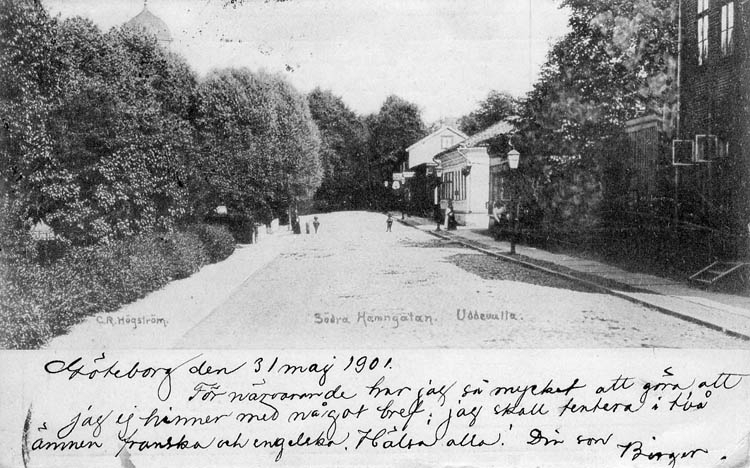 C.R. Högström.
Södra Hamngatan. Uddevalla.
Göteborg den 31 maj 1901.
För närvarande har jag så mycket att göra att
jag ej hinner med något bref; jag skall tentera i två
ämnen franska och engelska. Hälsa alla! Din son
Birger.